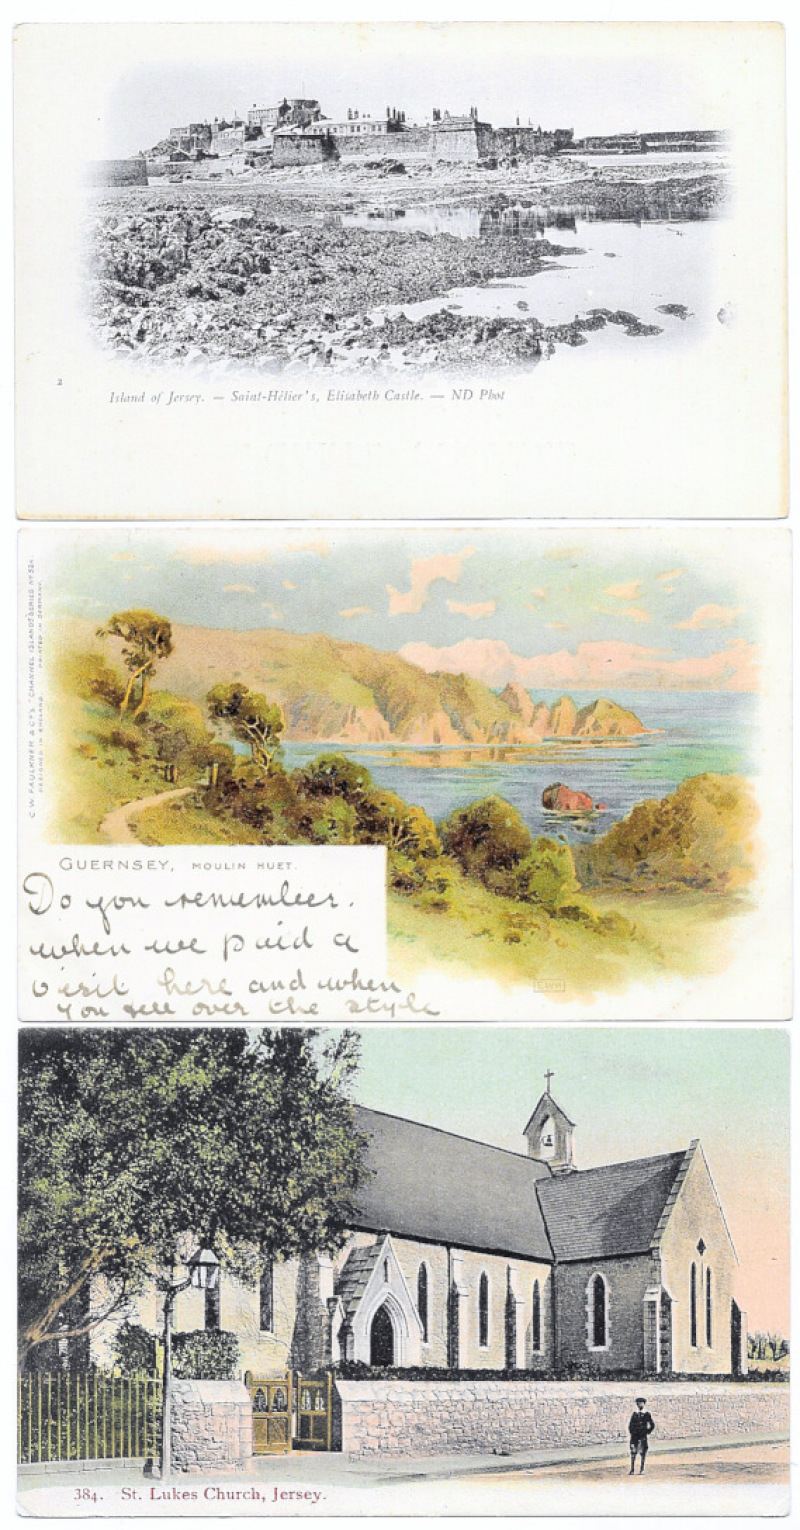 2
Island of Jersey. — Saint-Hélier's, Elisabeth Castle. — ND Phot
C.W. FAULKNER & CO'S "CHANNEL ISLANDS" SERIES Nº 524
DESIGNED IN ENGLAND. PRINTED IN GERMANY.
GUERNSEY, MOULIN HUET.
Do you remember.
when we paid a
visit here and when
you fell over the style
384. St. Lukes Church, Jersey.